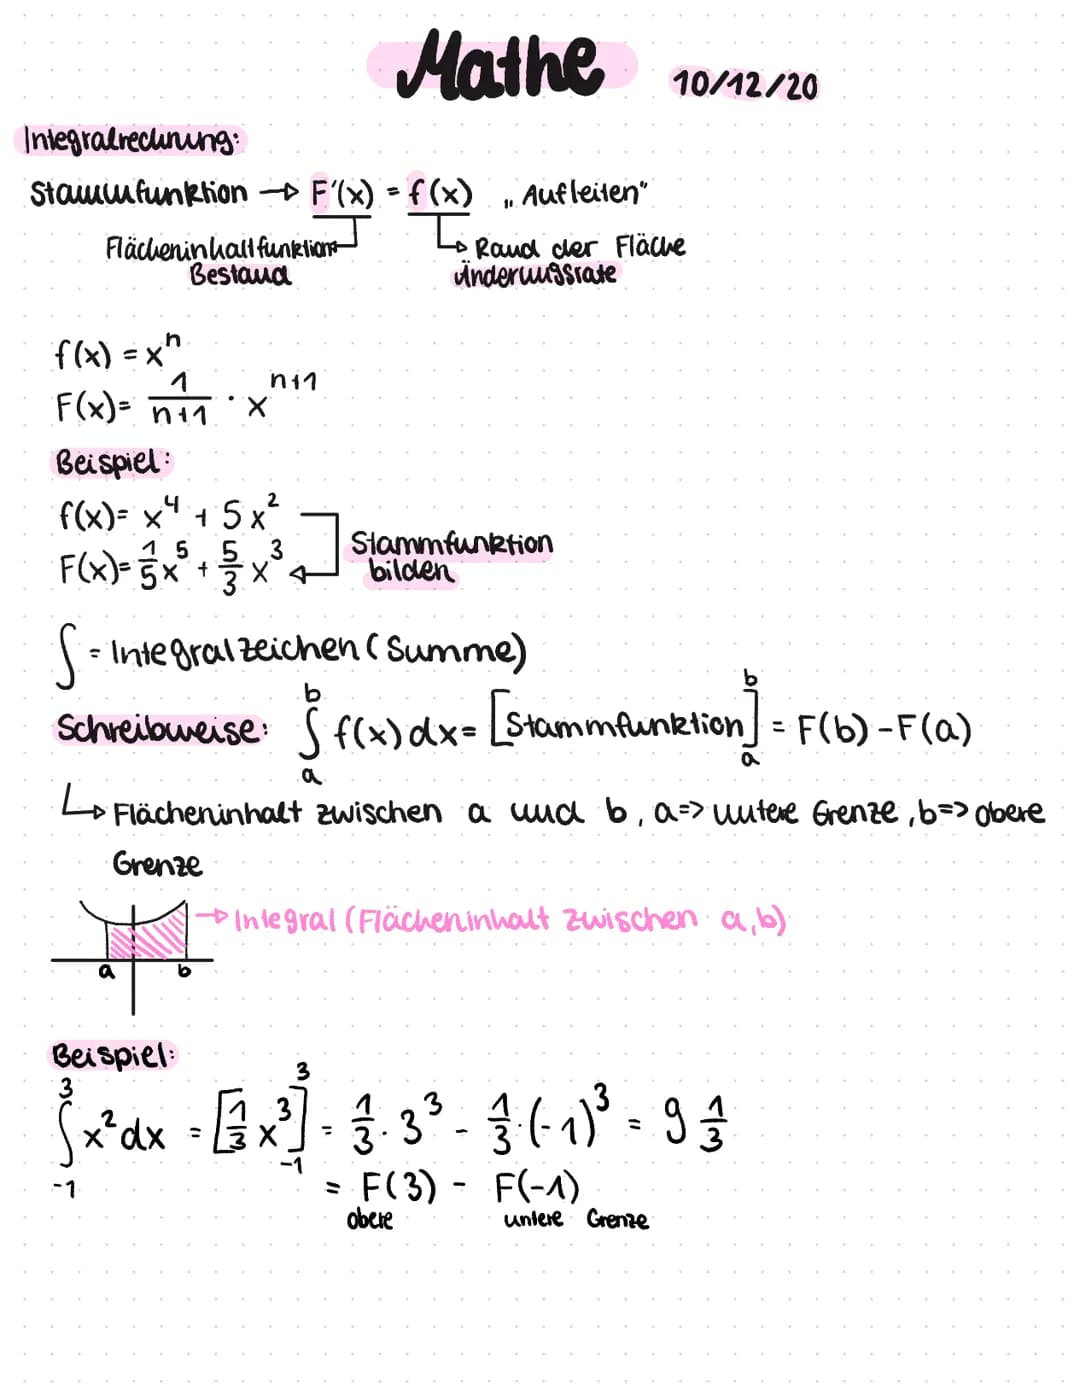 Mathe 10/12/20
Integralrechnung:
Stammfunktion → F'(x) = f(x) „Aufleiten"
Flächeninhaltfunktion → Rand der Fläche
Bestand Änderungsrate
f(x) = xⁿ
F(x)= 1/(n+1) · xⁿ⁺¹
Beispiel:
f(x)= x⁴ + 5x²
F(x)= 1/5 x⁵ + 5/3 x³
Stammfunktion
bilden
∫ = Integralzeichen (Summe)
Schreibweise: ∫ₐᵇ f(x) dx = [Stammfunktion]ₐᵇ = F(b) - F(a)
↳ Flächeninhalt zwischen a und b, a=> untere Grenze, b=> obere
Grenze
→ Integral (Flächeninhalt zwischen a,b)
a b
Beispiel:
∫₋₁³ x² dx = [1/3 x³]₋₁³ = 1/3 · 3³ - 1/3 · (-1)³ = 9 1/3
= F(3) - F(-1)
obere untere Grenze